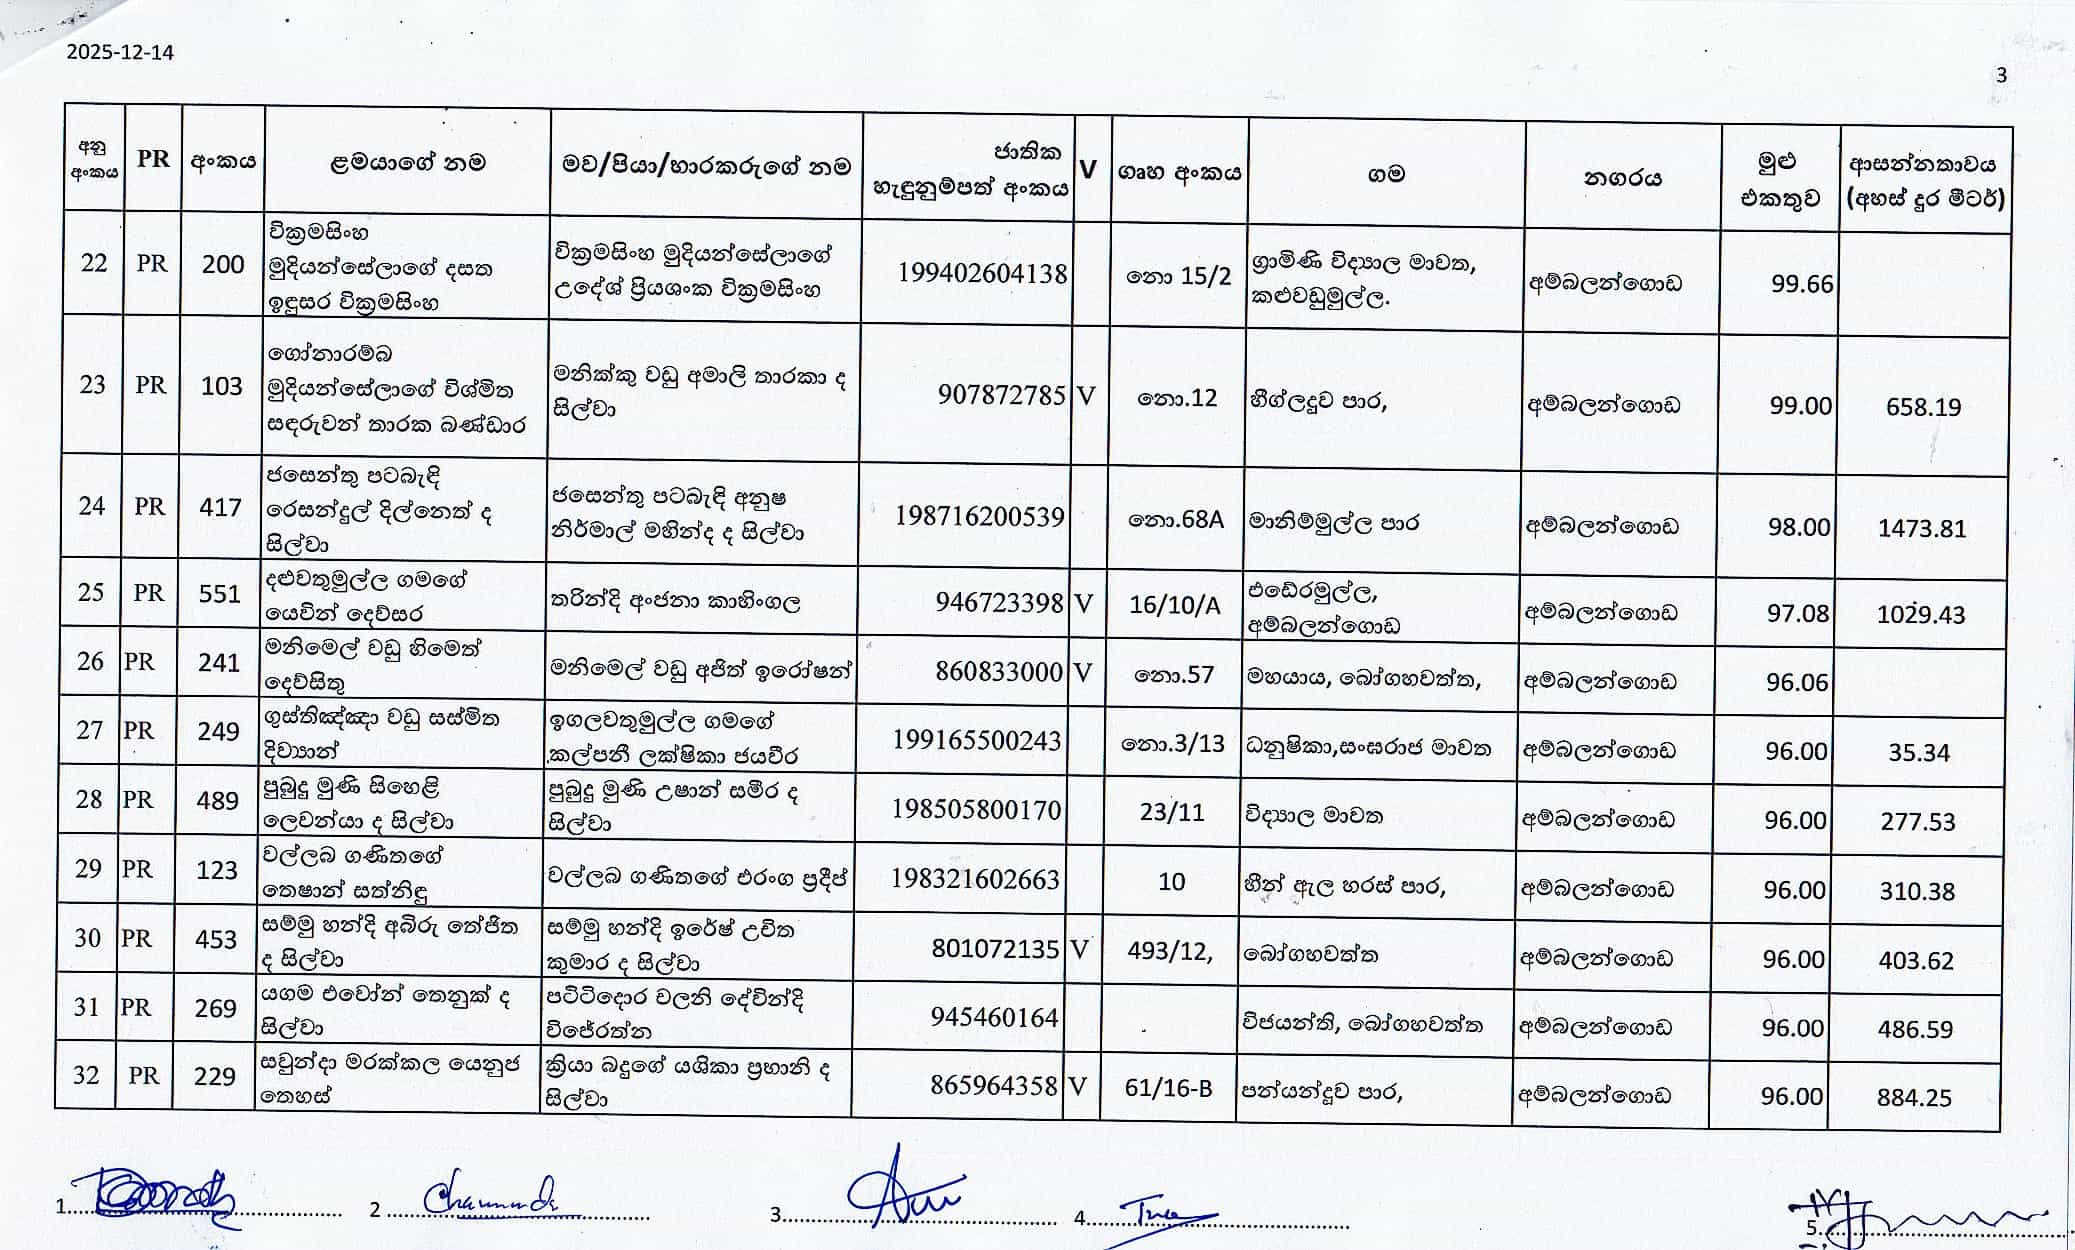 2025-12-14
3
අනු අංකය PR අංකය ළමයාගේ නම මව/පියා/භාරකරුගේ නම ජාතික හැඳුනුම්පත් අංකය V ගෘහ අංකය ගම නගරය මුළු එකතුව ආසන්නතාවය (අහස් දුර මීටර්)
22 PR 200 වික්‍රමසිංහ මුදියන්සේලාගේ දසත ඉඳුසර වික්‍රමසිංහ වික්‍රමසිංහ මුදියන්සේලාගේ උදේශ් ප්‍රියශංක වික්‍රමසිංහ 199402604138 නො 15/2 ග්‍රාමිණි විද්‍යාල මාවත, කළුවඩුමුල්ල. අම්බලන්ගොඩ 99.66
23 PR 103 ගෝනාරම්බ මුදියන්සේලාගේ විශ්මිත සඳරුවන් තාරක බණ්ඩාර මනික්කු වඩු අමාලි තාරකා ද සිල්වා 907872785 V නො.12 හීග්ලදූව පාර, අම්බලන්ගොඩ 99.00 658.19
24 PR 417 ජසෙන්තු පටබැඳි රෙසන්දුල් දිල්නෙත් ද සිල්වා ජසෙන්තු පටබැඳි අනුෂ නිර්මාල් මහින්ද ද සිල්වා 198716200539 නො.68A මානිම්මුල්ල පාර අම්බලන්ගොඩ 98.00 1473.81
25 PR 551 දළුවතුමුල්ල ගමගේ යෙවින් දෙව්සර තරින්දි අංජනා කාහිංගල 946723398 V 16/10/A එඬේරමුල්ල, අම්බලන්ගොඩ අම්බලන්ගොඩ 97.08 1029.43
26 PR 241 මනිමෙල් වඩු හිමෙත් දෙව්සිතු මනිමෙල් වඩු අජිත් ඉරෝෂන් 860833000 V නො.57 මහයාය, බෝගහවත්ත, අම්බලන්ගොඩ 96.06
27 PR 249 ගුස්තිඤ්ඤා වඩු සස්මිත දිව්‍යාන් ඉගලවතුමුල්ල ගමගේ කල්පනී ලක්ෂිකා ජයවීර 199165500243 නො.3/13 ධනුෂිකා,සංඝරාජ මාවත අම්බලන්ගොඩ 96.00 35.34
28 PR 489 පුබුදු මුණි සිහෙළි ලෙවන්යා ද සිල්වා පුබුදු මුණි උෂාන් සමීර ද සිල්වා 198505800170 23/11 විද්‍යාල මාවත අම්බලන්ගොඩ 96.00 277.53
29 PR 123 වල්ලබ ගණිතගේ තෙෂාන් සත්නිඳු වල්ලබ ගණිතගේ එරංග ප්‍රදීප් 198321602663 10 හීන් ඇල හරස් පාර, අම්බලන්ගොඩ 96.00 310.38
30 PR 453 සම්මු හන්දි අබිරු තේජිත ද සිල්වා සම්මු හන්දි ඉරේෂ් උචිත කුමාර ද සිල්වා 801072135 V 493/12, බෝගහවත්ත අම්බලන්ගොඩ 96.00 403.62
31 PR 269 යගම එවෝන් තෙනුක් ද සිල්වා පටිටිදොර චලනි දේවින්දි විජේරත්න 945460164 විජයන්ති, බෝගහවත්ත අම්බලන්ගොඩ 96.00 486.59
32 PR 229 සවුන්දා මරක්කල යෙනුජ තෙහස් ක්‍රියා බදුගේ යශිකා ප්‍රභානි ද සිල්වා 865964358 V 61/16-B පන්යන්දූව පාර, අම්බලන්ගොඩ 96.00 884.25
1. 2 3. 4. 5.